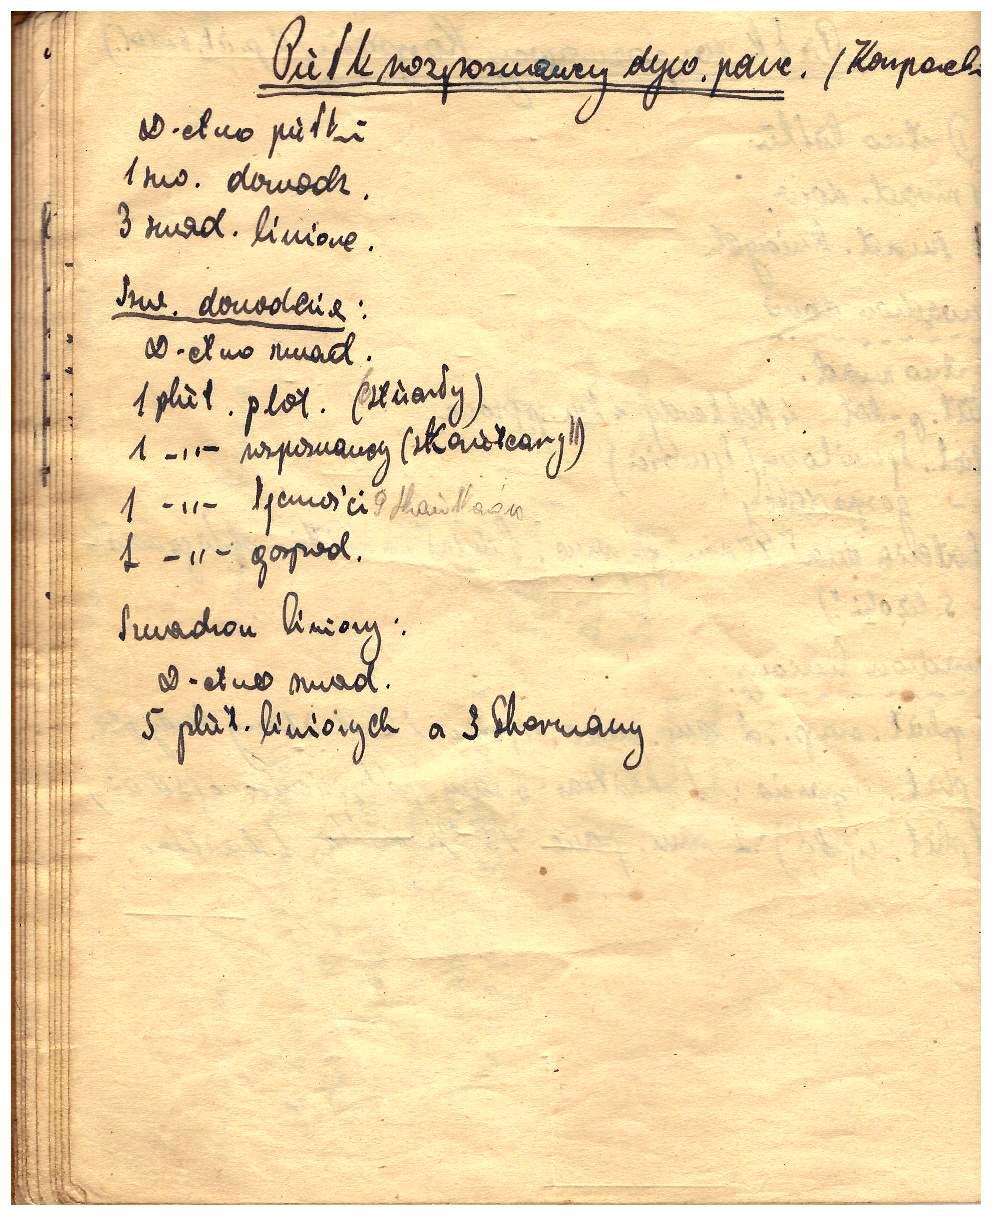 Pułk rozpoznawczy dyw. panc. (Kor
D-ctwo pułku
1 szw. dowodz.
3 szwad. liniowe.
Szw. dowodzenia:
D-ctwo szwad.
1 plut. plot. (stuardy)
1 -"- rozpoznawczy (skautcary)
1 -"- łączności 9
1 -"- gospod.
Szwadron liniowy:
D-ctwo szwad.
5 plut. liniowych a 3 Shermany